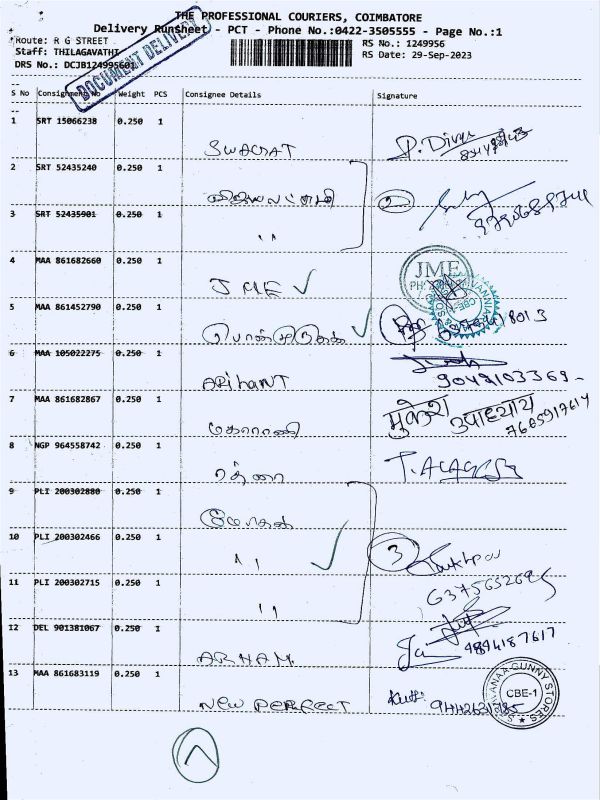 THE PROFESSIONAL COURIERS, COIMBATORE
Delivery Runsheet - PCT - Phone No.:0422-3505555 - Page No.:1
Route: R G STREET
RS No.: 1249956
Staff: THILAGAVATHI
RS Date: 29-Sep-2023
DRS No.: DCJB124995601
DOCUMENT DELIVERY
S No Consignment No Weight PCS Consignee Details Signature
1 SRT 15066238 0.250 1
SWAGAT P. Divya
2 SRT 52435240 0.250 1
விஜயலட்சுமி 2
3 SRT 52435901 0.250 1
"
4 MAA 861682660 0.250 1
JME ✓ JME
5 MAA 861452790 0.250 1
பொன்முருகன் ✓
6 MAA 105022275 0.250 1
ARIHANT 9042103369
7 MAA 861682867 0.250 1
மகாராணி मुकेश उपाध्याय 7685917614
8 NGP 964558742 0.250 1
T. ALAGESH
9 PLI 200302880 0.250 1
10 PLI 200302466 0.250 1
" ✓ 3
11 PLI 200302715 0.250 1
" 6375652695
12 DEL 901381067 0.250 1
ARHAM 9894187617
13 MAA 861683119 0.250 1
NEW PERFECT
GUNNY STORES
CBE-1